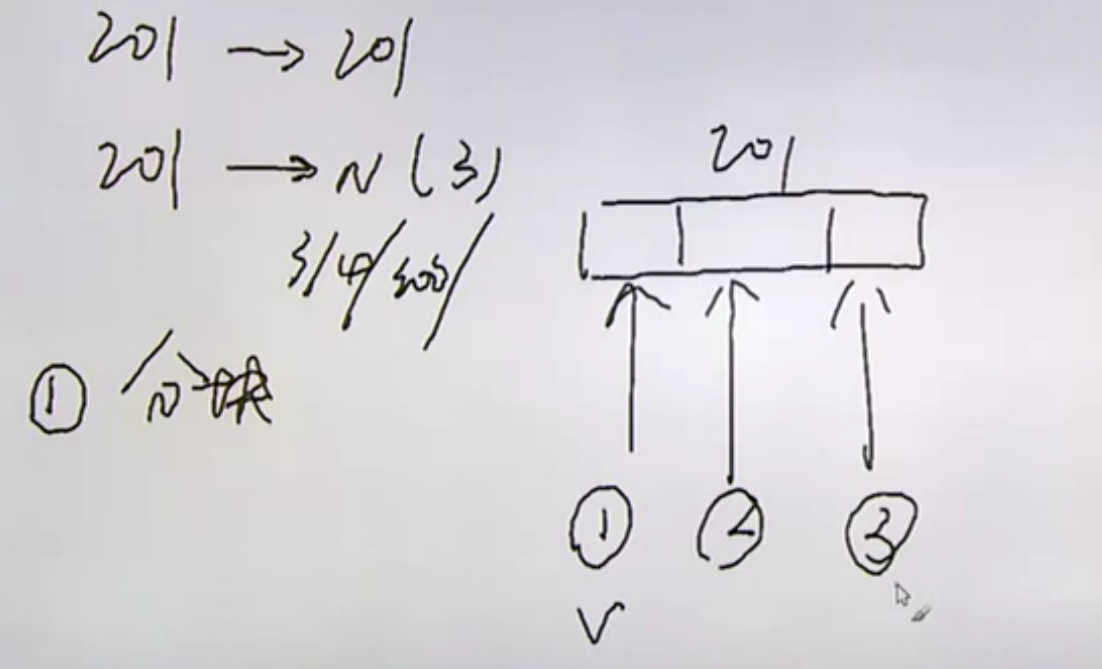 201 → 201
201 → N (3)
3/4/500/
① 分块
201
① ② ③
√